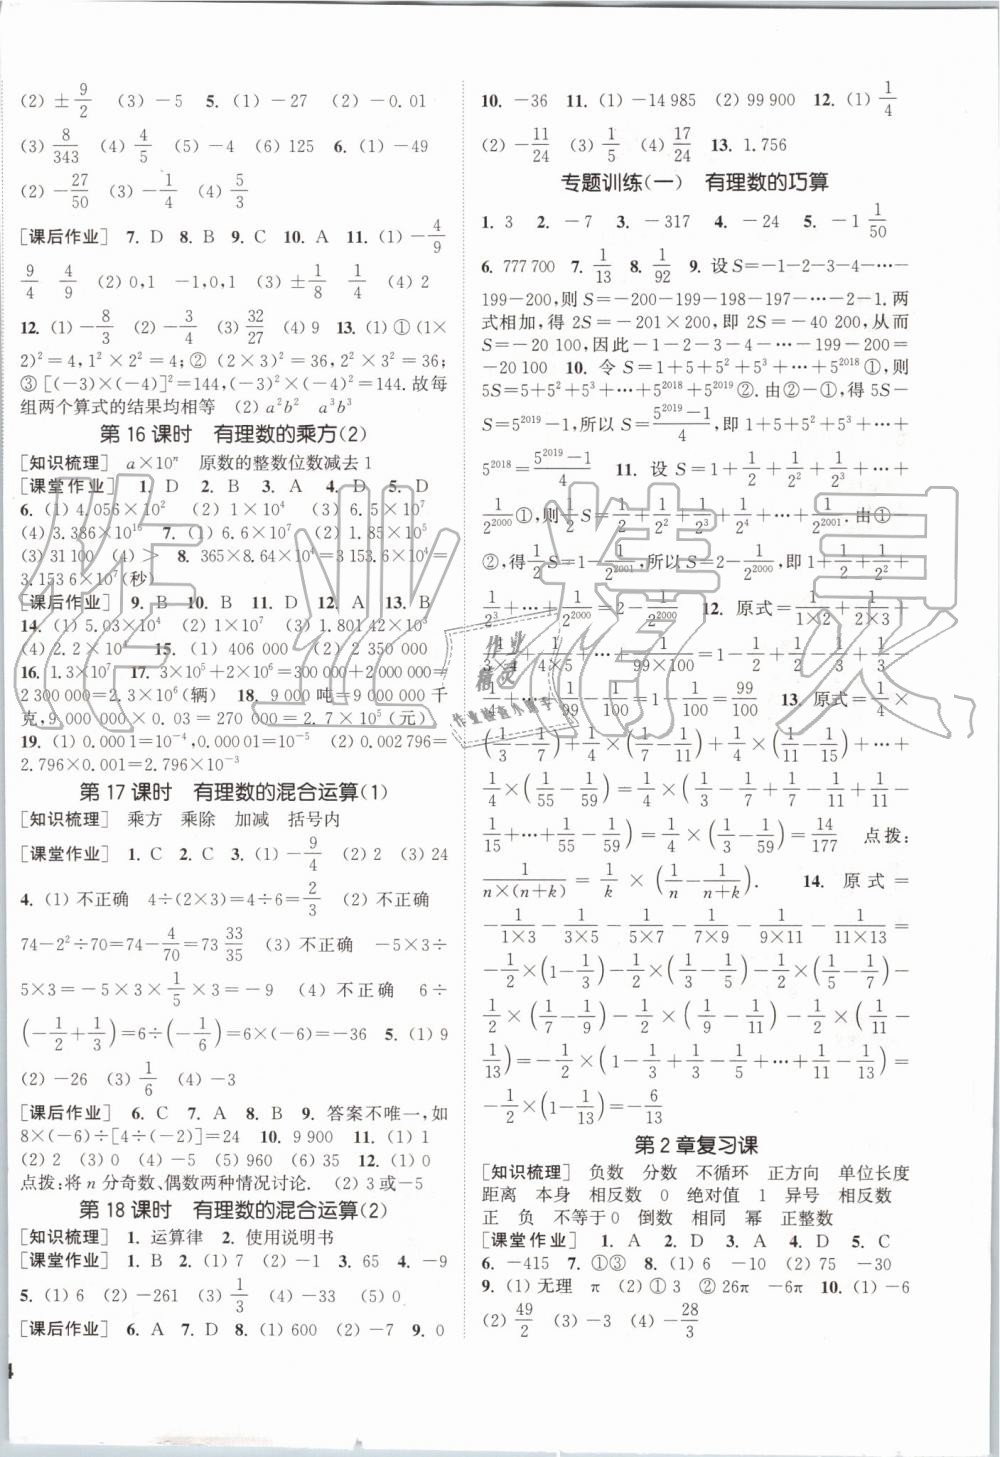 (2) ±9/2 (3) －5 5. (1) －27 (2) －0.01
(3) 8/343 (4) 4/5 (5) －4 (6) 125 6. (1) －49
(2) －27/50 (3) －1/4 (4) 5/3
[课后作业] 7. D 8. B 9. C 10. A 11. (1) －4/9
9/4 4/9 (2) 0,1 －1,0,1 (3) ±1/8 1/4 (4) 2
12. (1) －8/3 (2) －3/4 (3) 32/27 (4) 9 13. (1) ① (1×
2)²＝4,1²×2²＝4;② (2×3)²＝36,2²×3²＝36;
③ [(－3)×(－4)]²＝144,(－3)²×(－4)²＝144.故每
组两个算式的结果均相等 (2) a²b² a³b³
第 16 课时 有理数的乘方(2)
[知识梳理] a×10ⁿ 原数的整数位数减去 1
[课堂作业] 1. D 2. B 3. A 4. D 5. D
6. (1) 4.056×10² (2) 1×10⁴ (3) 6.5×10⁷
(4) 3.386×10¹⁶ 7. (1) 6.6×10⁷ (2) 1.85×10⁵
(3) 31 100 (4) > 8. 365×8.64×10⁴＝3 153.6×10⁴＝
3.153 6×10⁷(秒)
[课后作业] 9. B 10. B 11. D 12. A 13. B
14. (1) 5.03×10⁴ (2) 1×10⁷ (3) 1.801 42×10³
(4) 2.2×10⁴ 15. (1) 406 000 (2) 2 350 000
16. 1.3×10⁷ 17. 3×10⁵＋2×10⁶＝300 000＋2 000 000＝
2 300 000＝2.3×10⁶(辆) 18. 9 000 吨＝9 000 000 千
克,9 000 000×0.03＝270 000＝2.7×10⁵(元)
19. (1) 0.000 1＝10⁻⁴,0.000 01＝10⁻⁵ (2) 0.002 796＝
2.796×0.001＝2.796×10⁻³
第 17 课时 有理数的混合运算(1)
[知识梳理] 乘方 乘除 加减 括号内
[课堂作业] 1. C 2. C 3. (1) －9/4 (2) 2 (3) 24
4. (1) 不正确 4÷(2×3)＝4÷6＝2/3 (2) 不正确
74－2²÷70＝74－4/70＝73 33/35 (3) 不正确 －5×3÷
5×3＝－5×3×1/5×3＝－9 (4) 不正确 6÷
(－1/2＋1/3)＝6÷(－1/6)＝6×(－6)＝－36 5. (1) 9
(2) －26 (3) 1/6 (4) －3
[课后作业] 6. C 7. A 8. B 9. 答案不唯一,如
8×(－6)÷[4÷(－2)]＝24 10. 9 900 11. (1) 1
(2) 2 (3) 0 (4) －5 (5) 960 (6) 35 12. (1) 0
点拨:将 n 分奇数、偶数两种情况讨论. (2) 3或－5
第 18 课时 有理数的混合运算(2)
[知识梳理] 1. 运算律 2. 使用说明书
[课堂作业] 1. B 2. (1) 7 (2) －1 3. 65 4. －9
5. (1) 6 (2) －261 (3) 1/3 (4) －33 (5) 0
[课后作业] 6. A 7. D 8. (1) 600 (2) －7 9. 0
10. －36 11. (1) －14 985 (2) 99 900 12. (1) 1/4
(2) －11/24 (3) 1/5 (4) 17/24 13. 1.756
专题训练(一) 有理数的巧算
1. 3 2. －7 3. －317 4. －24 5. －1 1/50
6. 777 700 7. 1/13 8. 1/92 9. 设 S＝－1－2－3－4－…－
199－200,则 S＝－200－199－198－197－…－2－1.两
式相加,得 2S＝－201×200,即 2S＝－40 200,从而
S＝－20 100,所以－1－2－3－4－…－199－200＝
－20 100 10. 令 S＝1＋5＋5²＋5³＋…＋5²⁰¹⁸①,则
5S＝5＋5²＋5³＋…＋5²⁰¹⁸＋5²⁰¹⁹②.由②－①,得 5S－
S＝5²⁰¹⁹－1,所以 S＝(5²⁰¹⁹－1)/4,即 1＋5＋5²＋5³＋…＋
5²⁰¹⁸＝(5²⁰¹⁹－1)/4 11. 设 S＝1＋1/2＋1/2²＋1/2³＋…＋
1/2²⁰⁰⁰①,则1/2S＝1/2＋1/2²＋1/2³＋1/2⁴＋…＋1/2²⁰⁰¹②.由①－
②,得1/2S＝1－1/2²⁰⁰¹,所以 S＝2－1/2²⁰⁰⁰,即 1＋1/2＋1/2²＋
1/2³＋…＋1/2²⁰⁰⁰＝2－1/2²⁰⁰⁰ 12. 原式＝1/(1×2)＋1/(2×3)＋
1/(3×4)＋1/(4×5)＋…＋1/(99×100)＝1－1/2＋1/2－1/3＋…＋
1/99－1/100＝1－1/100＝99/100 13. 原式＝1/4×
(1/3－1/7)＋1/4×(1/7－1/11)＋1/4×(1/11－1/15)＋…＋
1/4×(1/55－1/59)＝1/4×(1/3－1/7＋1/7－1/11＋1/11－
1/15＋…＋1/55－1/59)＝1/4×(1/3－1/59)＝14/177 点拨:
1/(n×(n＋k))＝1/k×(1/n－1/(n＋k)). 14. 原式＝
－1/(1×3)－1/(3×5)－1/(5×7)－1/(7×9)－1/(9×11)－1/(11×13)＝
－1/2×(1－1/3)－1/2×(1/3－1/5)－1/2×(1/5－1/7)－
1/2×(1/7－1/9)－1/2×(1/9－1/11)－1/2×(1/11－
1/13)＝－1/2×(1－1/3＋1/3－1/5＋…＋1/11－1/13)＝
－1/2×(1－1/13)＝－6/13
第 2 章复习课
[知识梳理] 负数 分数 不循环 正方向 单位长度
距离 本身 相反数 0 绝对值 1 异号 相反数
正 负 不等于 0 倒数 相同 幂 正整数
[课堂作业] 1. A 2. D 3. A 4. D 5. C
6. －415 7. ①③ 8. (1) 6 －10 (2) 75 －30
9. (1) 无理 π (2) ① 3 ② 26π －6π 10. (1) －6
(2) 49/2 (3) －3 (4) －28/3
作业精灵
作业
精灵
作业检查小帮手